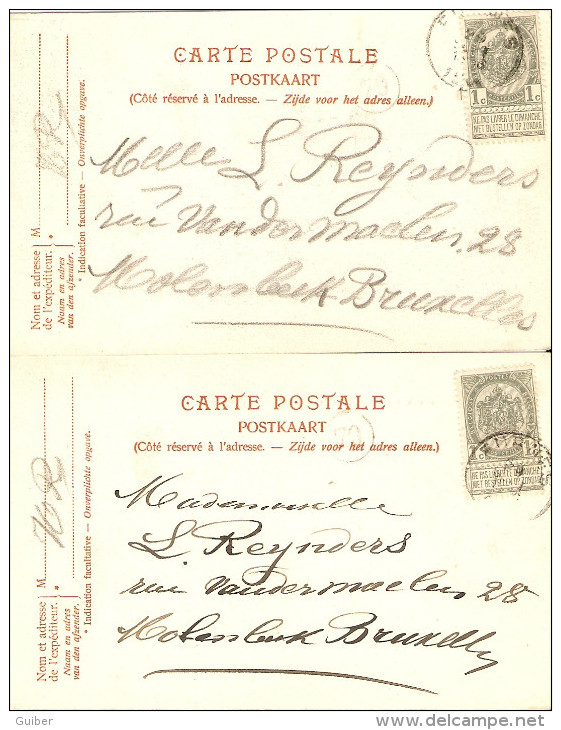 CARTE POSTALE
POSTKAART
(Côté réservé à l'adresse. — Zijde voor het adres alleen.)
Melle L. Reynders
rue Vandermaelen 28
Molenbeek Bruxelles
Nom et adresse
de l'expéditeur.
Naam en adres
van den afzender.
M
* Indication facultative — Onverplichte opgave.
1c 1c
NE PAS LIVRER LE DIMANCHE
NIET BESTELLEN OP ZONDAG
CARTE POSTALE
POSTKAART
(Côté réservé à l'adresse. — Zijde voor het adres alleen.)
Mademoiselle
L. Reynders
rue Vandermaelen 28
Molenbeek Bruxelles
Nom et adresse
de l'expéditeur.
Naam en adres
van den afzender.
M
* Indication facultative — Onverplichte opgave.
NE PAS LIVRER LE DIMANCHE
NIET BESTELLEN OP ZONDAG
Guiber
delcampe.net